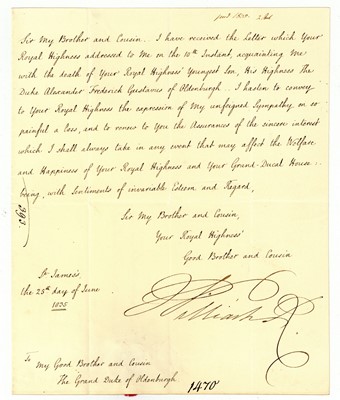 Sir My Brother and Cousin. I have received the Letter which Your
Royal Highness addressed to Me on the 10th Instant, acquainting Me
with the death of Your Royal Highness' Youngest Son, His Highness The
Duke Alexander Frederick Gustavus of Oldenburgh. I hasten to convey
to Your Royal Highness the expression of My unfeigned Sympathy on so
painful a loss, and to renew to You the Assurances of the sincere interest
which I shall always take in any event that may affect the Welfare
and Happiness of Your Royal Highness and Your Grand-Ducal House.
being, with Sentiments of invariable Esteem and Regard,
Sir My Brother and Cousin,
Your Royal Highness'
Good Brother and Cousin
William R.
St. James's,
the 25th day of June
1835
To My Good Brother and Cousin
The Grand Duke of Oldenburgh.
1470